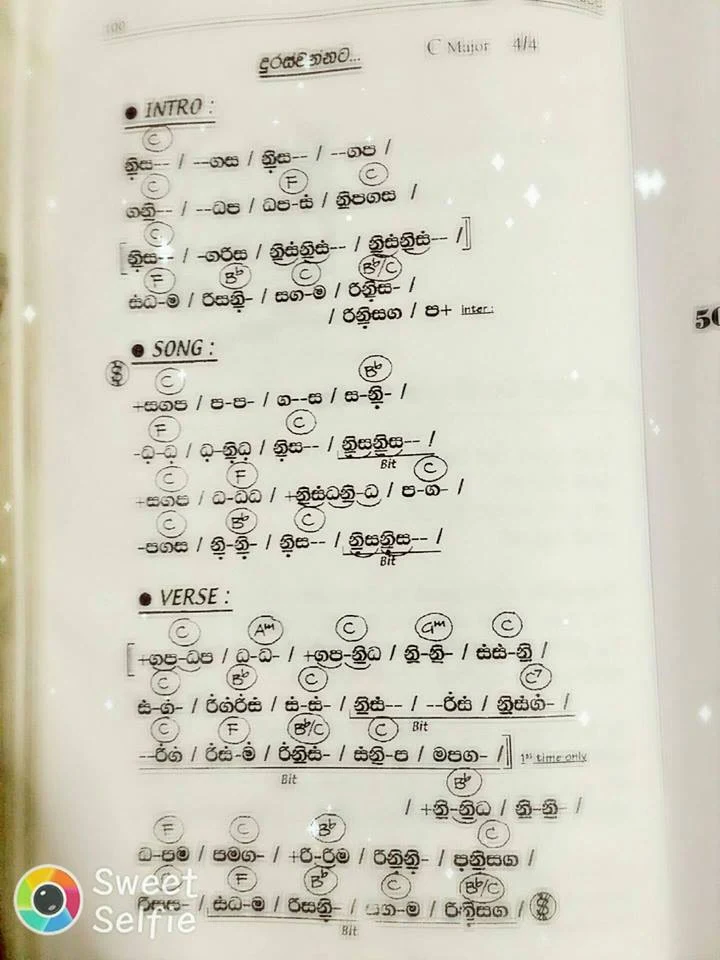 100
C Major 4/4
● INTRO :
C
නි̣ස-- / --ගස / නි̣ස-- / --ගප /
C F C
ගනි-- / --ධප / ධප-ස් / නිපගස /
C
[නි̣ස-- / -ගරිස / නිස්නිස්-- / නිස්නිස්-- /]
F B♭ C B♭/C
ස්ධ-ම / රිසනි̣- / සග-ම / රිනි̣ස- /
/ රිනි̣සග / ප+ inter:
● SONG :
C B♭
+සගප / ප-ප- / ග--ස / ස-නි̣- /
F C
-ධ̣-ධ̣ / ධ̣-නි̣ධ̣ / නි̣ස-- / නි̣සනි̣ස-- /
Bit
C F C
+සගප / ධ-ධධ / +නිස්ධනි-ධ / ප-ග- /
C B♭ C
-පගස / නි̣-නි̣- / නි̣ස-- / නි̣සනි̣ස-- /
Bit
● VERSE :
C Am C Gm C
[+ගප-ධප / ධ-ධ- / +ගප-නිධ / නි-නි- / ස්ස්-නි /
C B♭ C C7
ස්-ග්- / රි්ග්රි්ස් / ස්-ස්- / නිස්-- / --රි්ස් / නිස්ග්- /
Bit
C F B♭/C C
--රි්ග් / රි්ස්-ම් / රි්නිස්- / ස්නි-ප / මපග- /] 1st time only
Bit
B♭
/ +නි-නිධ / නි-නි- /
F C B♭ C
ධ-පම / පමග- / +රි-රිම / රිනි̣නි̣- / ප̣නි̣සග /
F B♭ C B♭/C
රිසස- / ස්ධ-ම / රිසනි̣- / සග-ම / රිනි̣සග /
Bit
50
Sweet
Selfie